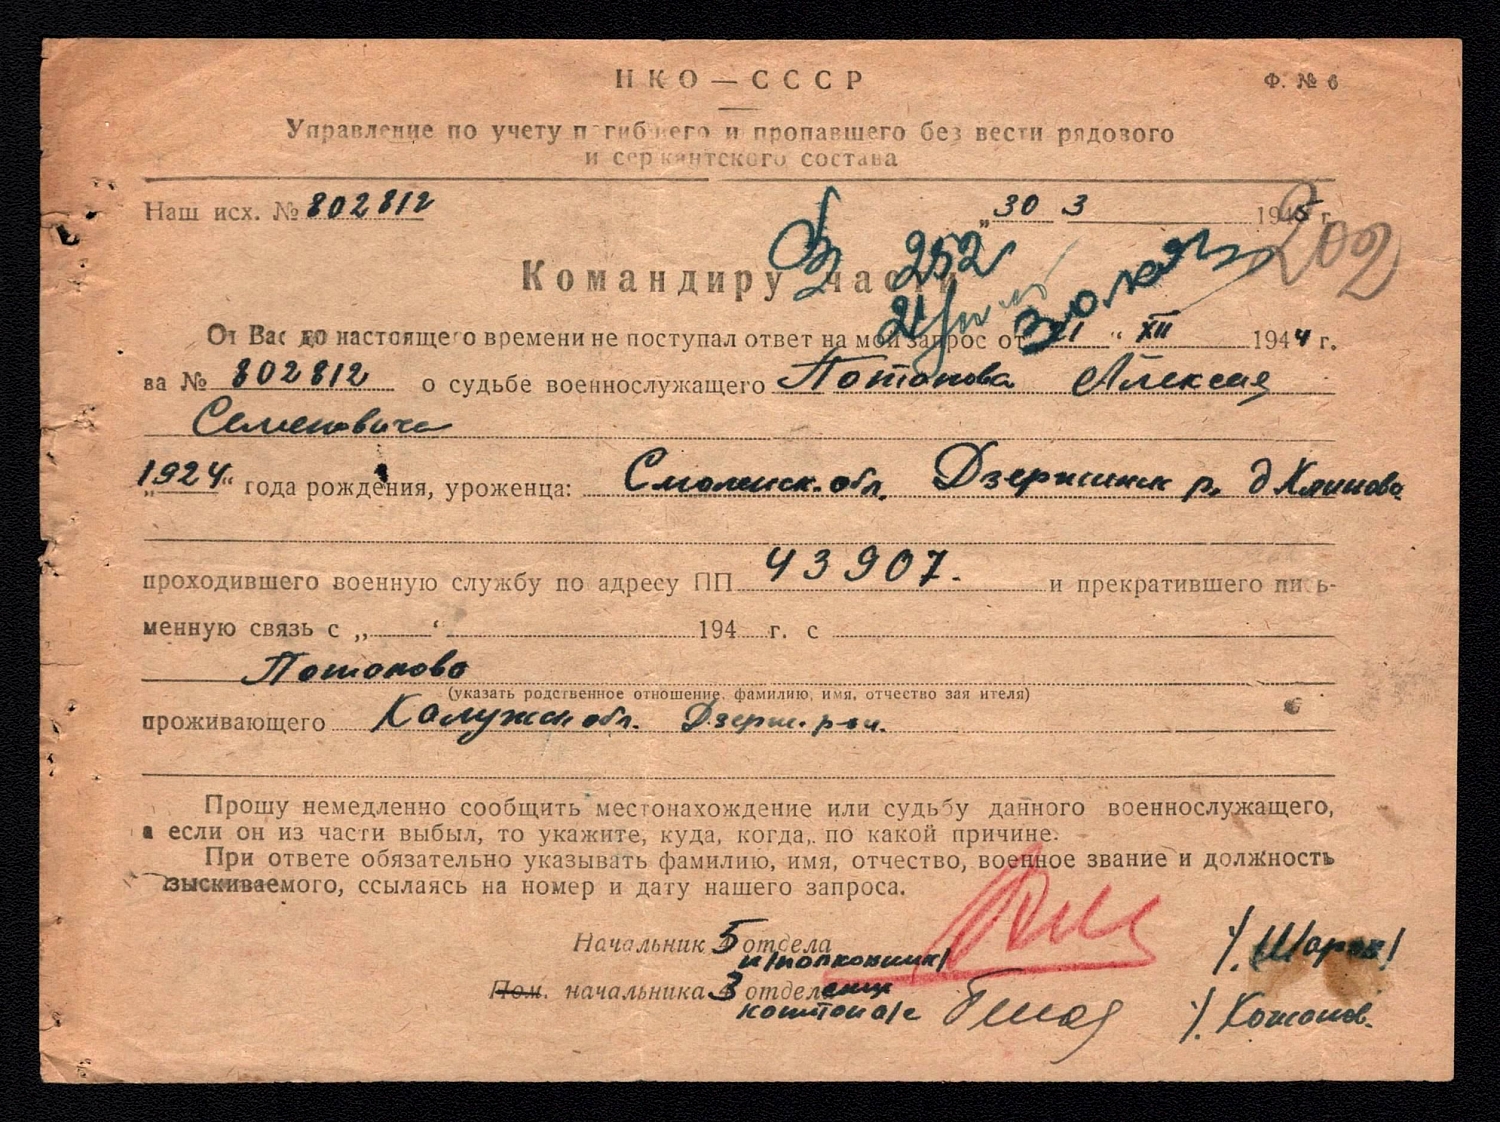 НКО — СССР
Ф. № 6
Управление по учету погибшего и пропавшего без вести рядового
и сержантского состава
Наш исх. № 802812 „30 3 1945 г.
202
252
Командиру части
От Вас до настоящего времени не поступал ответ на мой запрос от 21 “ XII 1944 г.
за № 802812 о судьбе военнослужащего Потапова Алексея
Семеновича
„1924“ года рождения, уроженца: Смоленск. обл. Дзержинск р. д
проходившего военную службу по адресу ПП 43907. и прекратившего пись-
менную связь с „ “ 194 г. с
Потапова
(указать родственное отношение, фамилию, имя, отчество заявителя)
проживающего Калужск обл. Дзерж. р-он.
Прошу немедленно сообщить местонахождение или судьбу данного военнослужащего,
а если он из части выбыл, то укажите, куда, когда, по какой причине.
При ответе обязательно указывать фамилию, имя, отчество, военное звание и должность
разыскиваемого, ссылаясь на номер и дату нашего запроса.
Начальник 5 отдела
п/полковник
Пом. начальника 3 отделения
капитан а/с